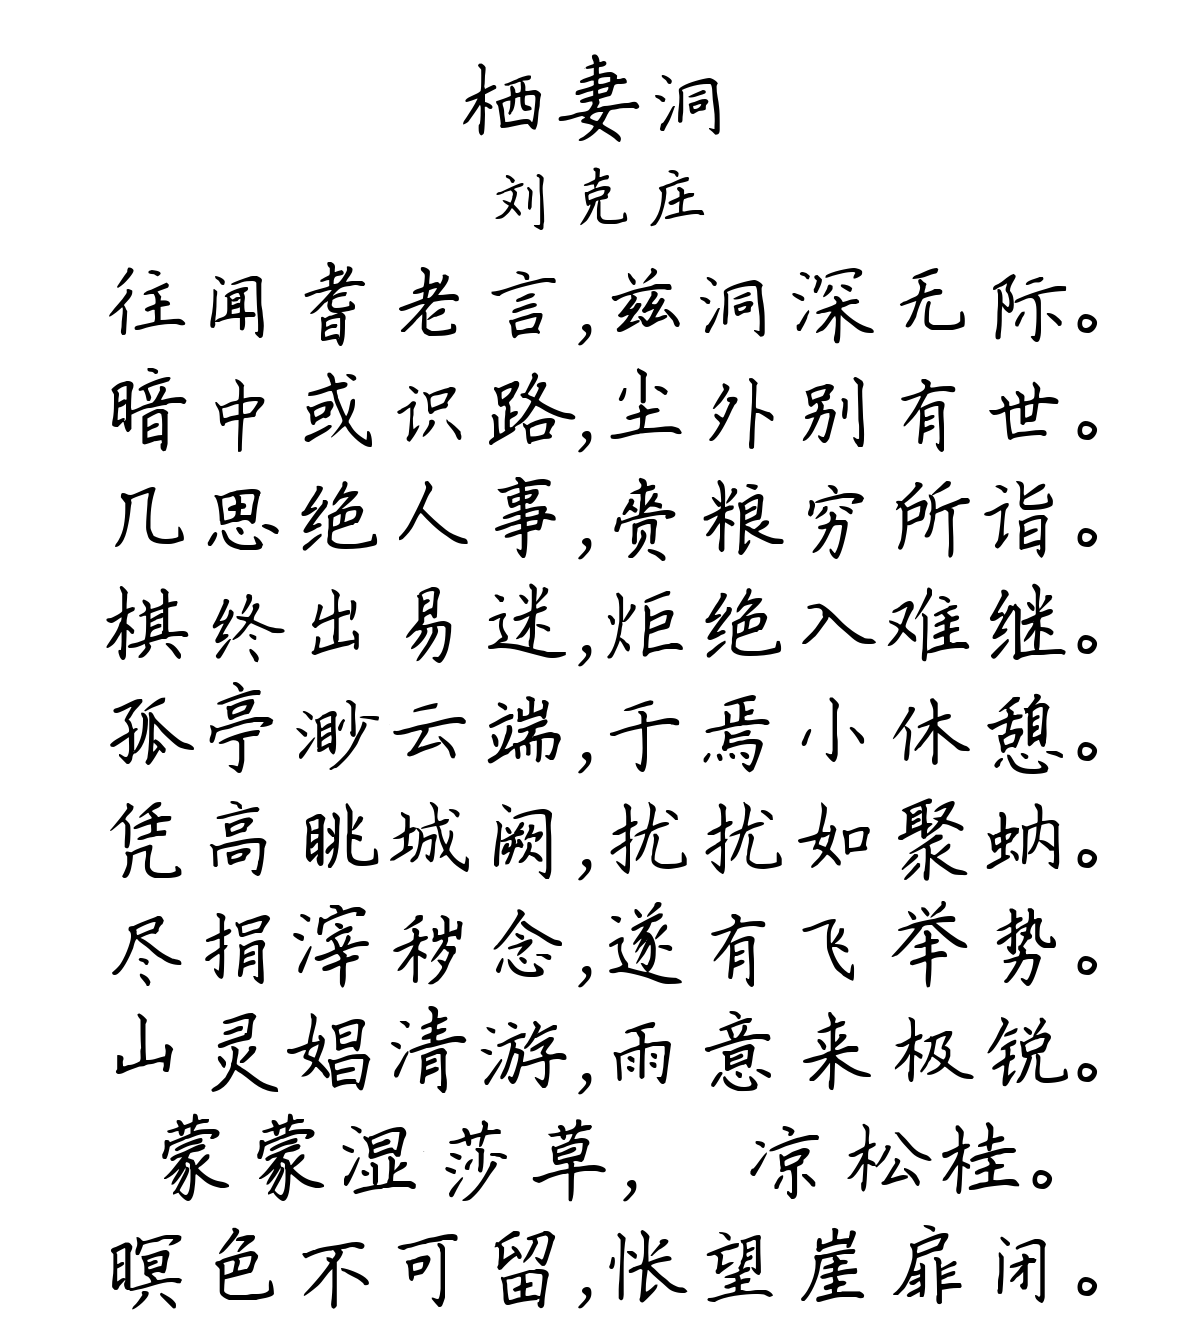 栖妻洞
刘克庄
往闻耆老言,兹洞深无际。
暗中或识路,尘外别有世。
几思绝人事,赍粮穷所诣。
棋终出易迷,炬绝入难继。
孤亭渺云端,于焉小休憩。
凭高眺城阙,扰扰如聚蚋。
尽捐滓秽念,遂有飞举势。
山灵娼清游,雨意来极锐。
蒙蒙湿莎草, 凉松桂。
暝色不可留,怅望崖扉闭。